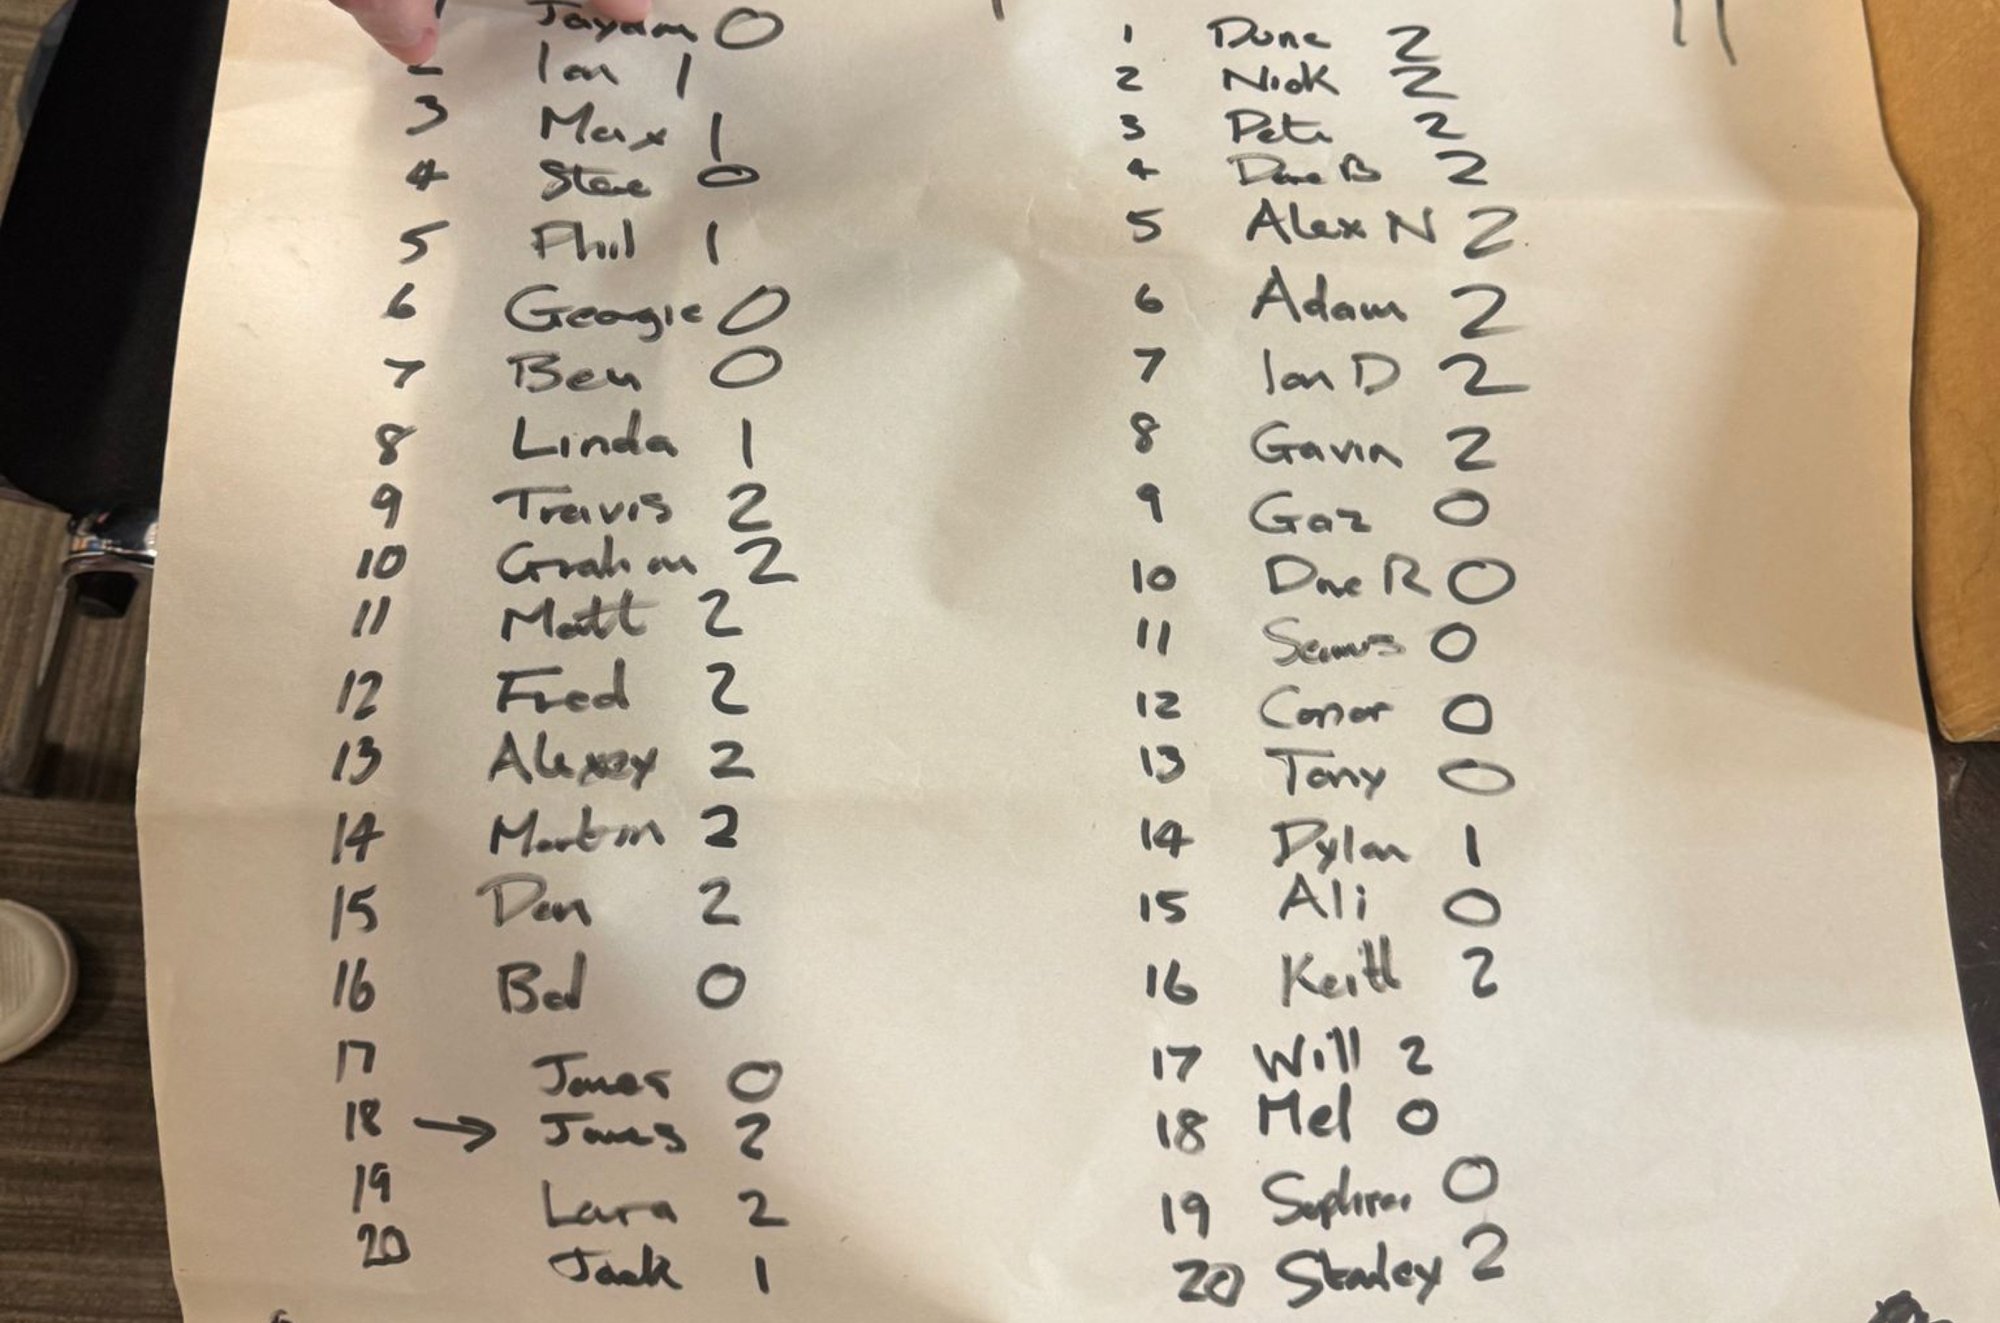 Jayden 0
2 Ian 1
3 Max 1
4 Steve 0
5 Phil 1
6 Georgie 0
7 Ben 0
8 Linda 1
9 Travis 2
10 Graham 2
11 Matt 2
12 Fred 2
13 Alexey 2
14 Martin 2
15 Dan 2
16 0
17 James 0
18 → James 2
19 Lara 2
20 Jack 1
1 2
2 Nick 2
3 Pete 2
4 Dave B 2
5 Alex N 2
6 Adam 2
7 Ian D 2
8 Gavin 2
9 Gaz 0
10 Dave R 0
11 Seamus 0
12 Conor 0
13 Tony 0
14 Dylan 1
15 Ali 0
16 Keith 2
17 Will 2
18 Mel 0
19 0
20 Stanley 2